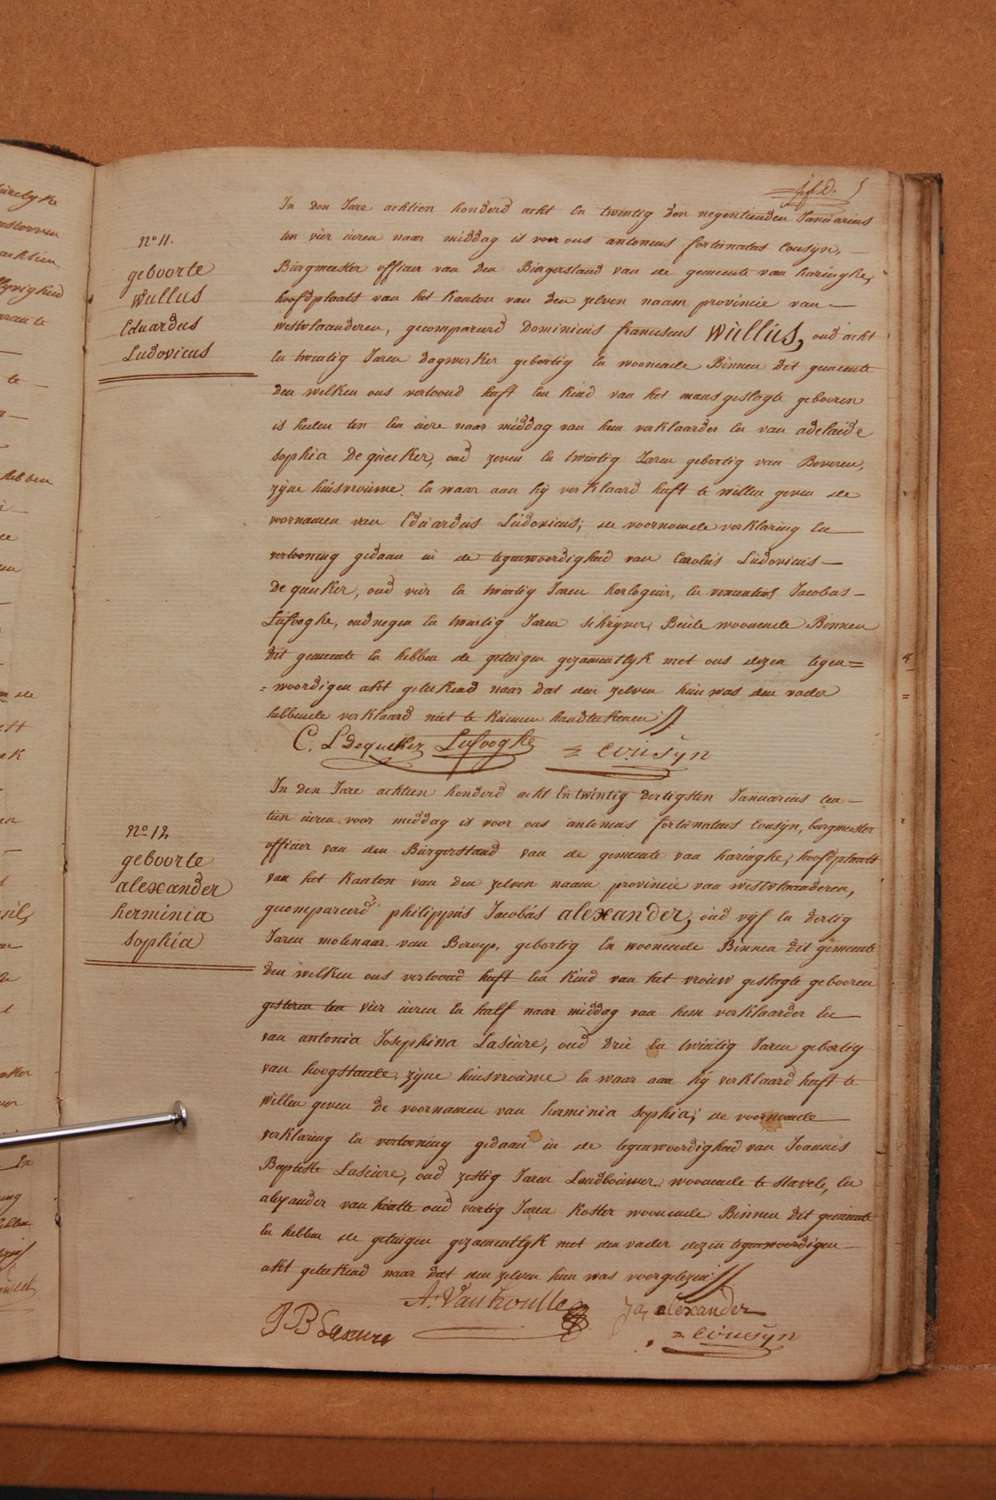 N° 11.
geboorte
Wullus
Eduardus
Ludovicus
In den Jare achtien honderd acht En twintig den negentienden Januarius
ten vier uren naar middag is voor ons antonius fortunatus Cousyn,
Burgmeester officier van den Burgerstand van de gemeente van haringhe,
hoofdplaats van het Kanton van den zelven naam provincie van
westvlaanderen, gecompareerd Dominicus franciscus Wullus, oud acht
En twintig Jaren dagwerker gebortig En woonende Binnen dit gemeente
den welken ons vertoond heeft Een kind van het mansgeslagte gebooren
is heden ten Een ure naar middag van hem verklaarder En van adelaide
sophia De queker, oud zeven En twintig Jaren gebortig van Beveren,
zijne huisvrouwe. En waar aan hij verklaard heeft te willen geven de
voornamen van Eduardus Ludovicus; de voornoemde verklaring En
vertooning gedaan in de tegenwoordigheid van Carolus Ludovicus
De queker, oud vier En twintig Jaren horlogeur, En Jacobus
Lafooghe, oud negen En twintig Jaren schrijver, Beide woonende Binnen
dit gemeente En hebben de getuigen gezamentlyk met ons dezen tegen=
=woordigen akt geteekend naar dat den zelven hun was den vader
hebbende verklaard niet te kunnen handteekenen
C. L Dequeker Lafooghe Cousyn
N° 12.
geboorte
alexander
herminia
sophia
In den Jare achtien honderd acht En twintig dertigsten Januarius ten
tien uren voor middag is voor ons antonius fortunatus Cousyn, burgmeester
officier van den Burgerstand van de gemeente van haringhe, hoofdplaats
van het Kanton van den zelven naam provincie van westvlaanderen,
gecompareerd philippus Jacobus alexander, oud vyf En dertig
Jaren molenaar van Beroep, gebortig En woonende Binnen dit gemeente
den welken ons vertoond heeft Een kind van het vrouw geslagte gebooren
gisteren ten vier uren En half naar middag van hem verklaarder En
van antonia Josephina Laseure, oud drie En twintig Jaren gebortig
van hoogstaede. zijne huisvrouwe En waar aan hij verklaard heeft te
willen geven De voornamen van herminia sophia; de voornoemde
verklaring En vertooning gedaan in de tegenwoordigheid van Joannis
Baptiste Laseure, oud zestig Jaren Landbouwer woonende te stavele, En
alexander van houtte oud veertig Jaren Koster woonende Binnen dit gemeente
En hebben de getuigen gezamentlyk met den vader dezen tegenwoordigen
akt geteekend naar dat den zelven hun was voorgelezen
J B Laxure A. Vanhoutte alexander
Cousyn